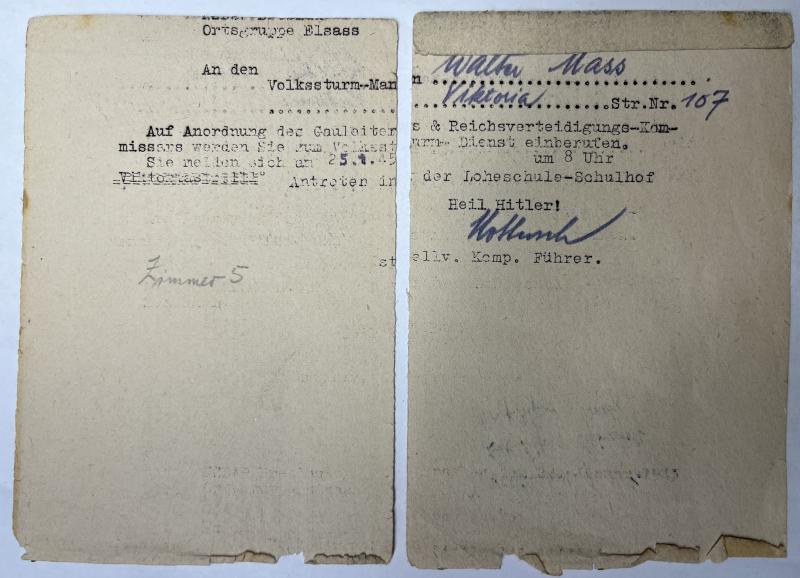 Ortsgruppe Elsass
An den
Volkssturm-Mann Walter Mass
Viktoria Str.Nr. 107
Auf Anordnung des Gauleiters & Reichsverteidigungs-Kom-
missars werden Sie zum Volkssturm- Dienst einberufen.
Sie melden sich am 25.1.45 um 8 Uhr
Viktoriastraße Antreten in der Loheschule-Schulhof
Heil Hitler!
stellv. Komp. Führer.
Zimmer 5